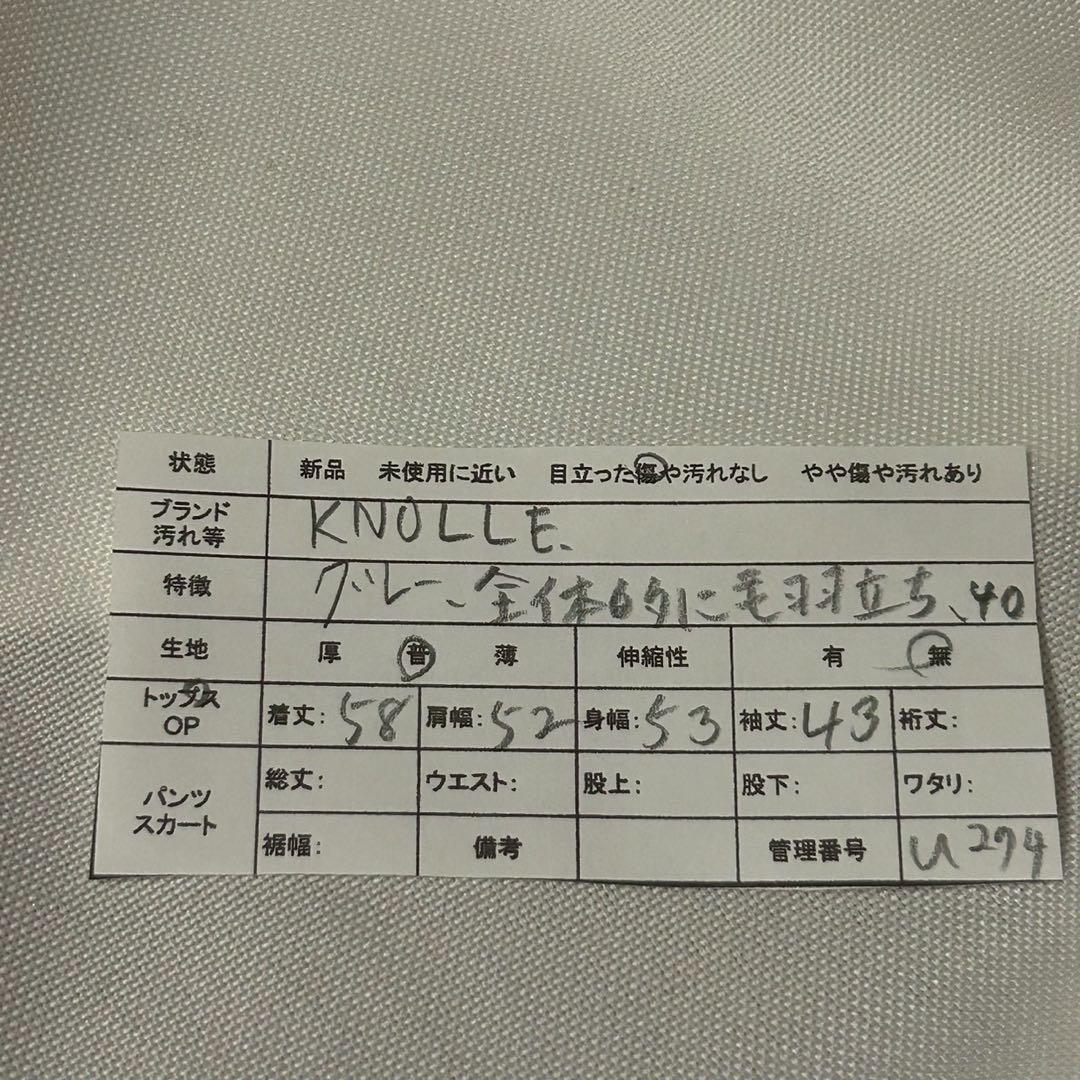 状態 新品 未使用に近い 目立った傷や汚れなし やや傷や汚れあり
ブランド
汚れ等 KNOLLE、
特徴 グレー、全体的に毛羽立ち、40
生地 厚 普 薄 伸縮性 有 無
トップス
OP 着丈:58 肩幅:52 身幅:53 袖丈:43 裄丈:
パンツ
スカート 総丈: ウエスト: 股上: 股下: ワタリ:
裾幅: 備考 管理番号 U274